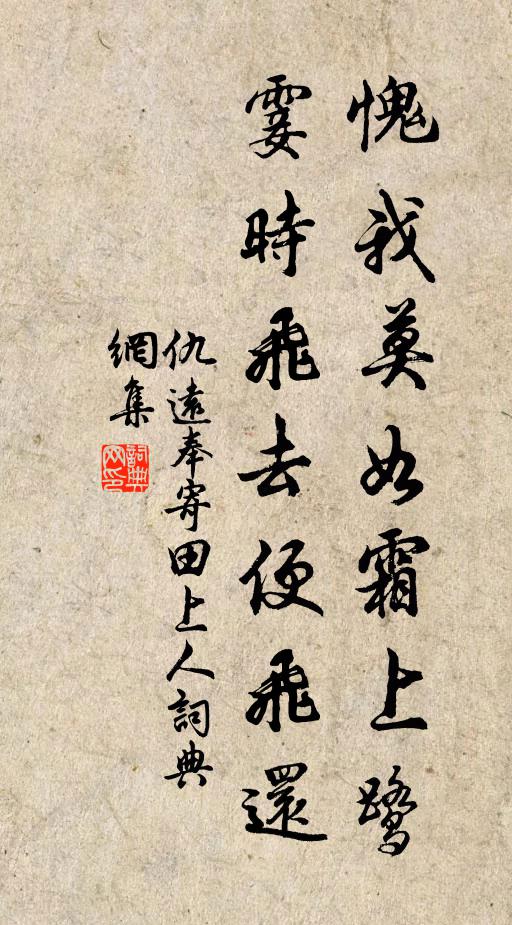 愧我莫如霜上鷺
霎時飛去便飛還
仇遠奉寄田上人詞典
網集
詞典網印